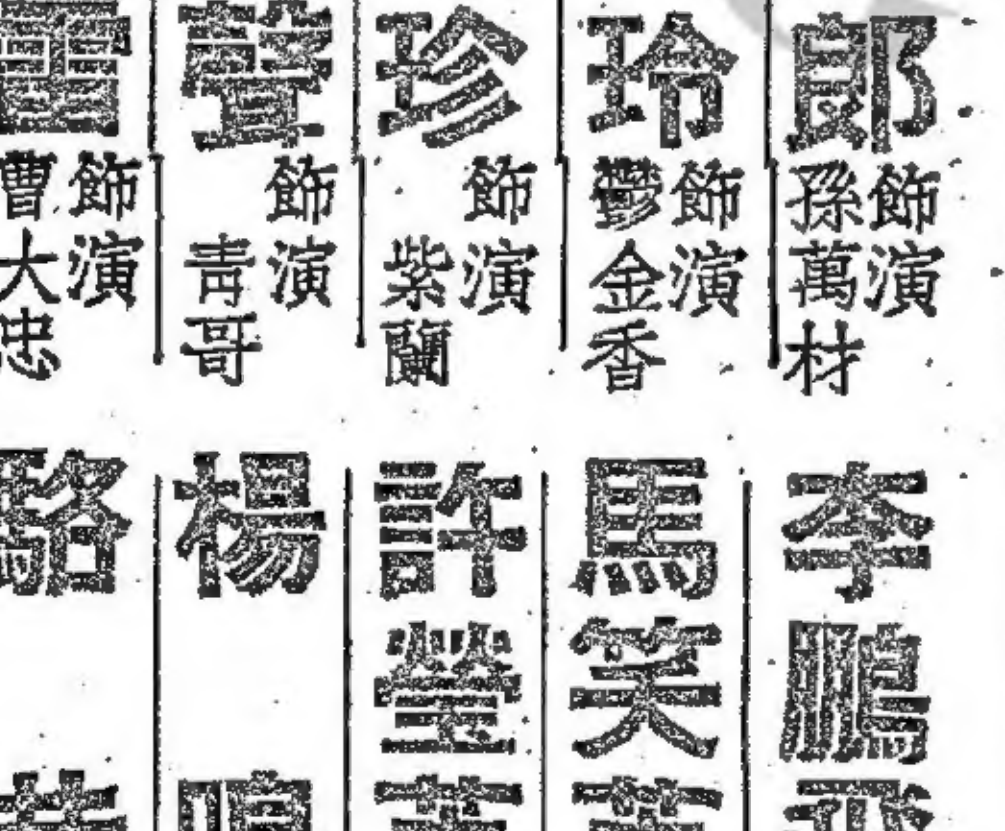 郎
飾演
孫萬材
玲
飾演
鬱金香
珍
飾演
紫蘭
聲
飾演
青哥
飾演
曹大忠
李鵬飛
馬笑
許瑩
楊
駱